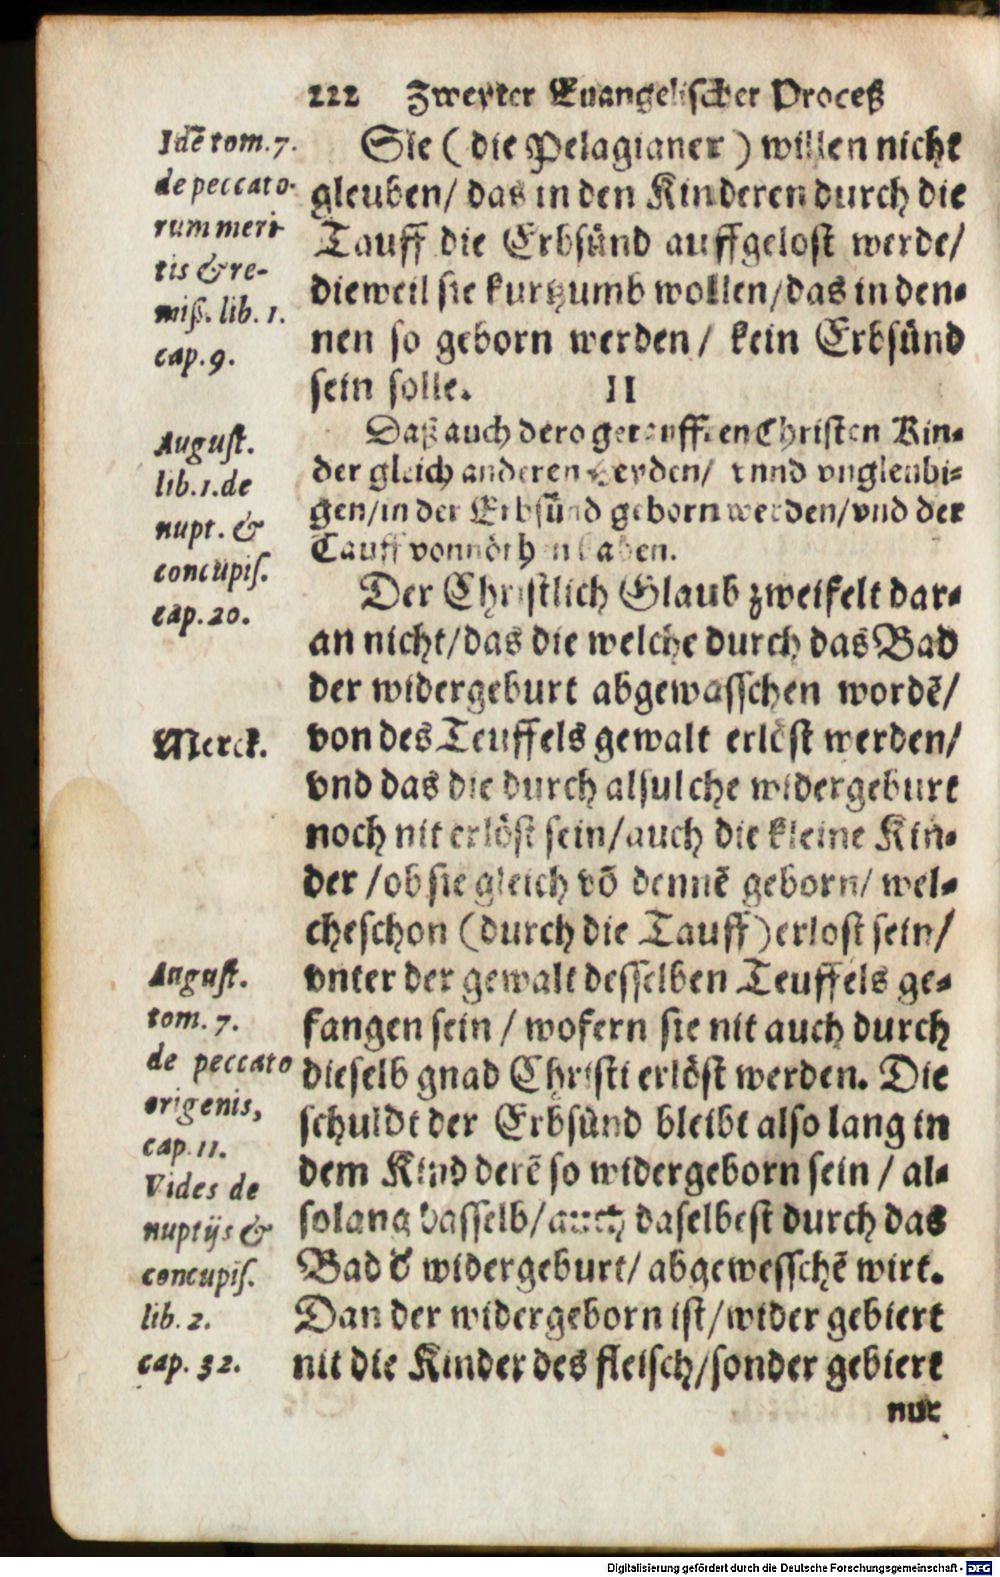 222 Zweyter Euangelischer Proceß
Idē tom. 7.
de peccato-
rum meri-
tis & re-
miß. lib. 1.
cap. 9.
Sie ( die Pelagianer ) willen nicht
gleuben/ das in den Kinderen durch die
Tauff die Erbsünd auffgelost werde/
dieweil sie kurtzumb wollen/das in den-
nen so geborn werden/ kein Erbsünd
sein solle. II
August.
lib. 1. de
nupt. &
concupis.
cap. 20.
Daß auch dero getaufften Christen Kin-
der gleich anderen Heyden/ vnnd vngleubi-
gen/in der Erbsünd geborn werden/vnd der
Tauff vonnöthen haben.
Der Christlich Glaub zweifelt dar-
an nicht/das die welche durch das Bad
der widergeburt abgewasschen wordē/
Merck.
von des Teuffels gewalt erlöst werden/
vnd das die durch alsulche widergeburt
noch nit erlöst sein/auch die kleine Kin-
der /ob sie gleich vō dennē geborn/ wel-
che schon (durch die Tauff) erlost sein/
August.
tom. 7.
de peccato
origenis,
cap. 11.
Vides de
nuptijs &
concupis.
lib. 2.
cap. 32.
vnter der gewalt desselben Teuffels ge-
fangen sein / wofern sie nit auch durch
dieselb gnad Christi erlöst werden. Die
schuldt der Erbsünd bleibt also lang in
dem Kind derē so widergeborn sein / al-
solang dasselb/auch daselbest durch das
Bad d' widergeburt/ abgewesschē wirt.
Dan der widergeborn ist/wider gebiert
nit die Kinder des fleisch/sonder gebiert
nur
Digitalisierung gefördert durch die Deutsche Forschungsgemeinschaft - DFG